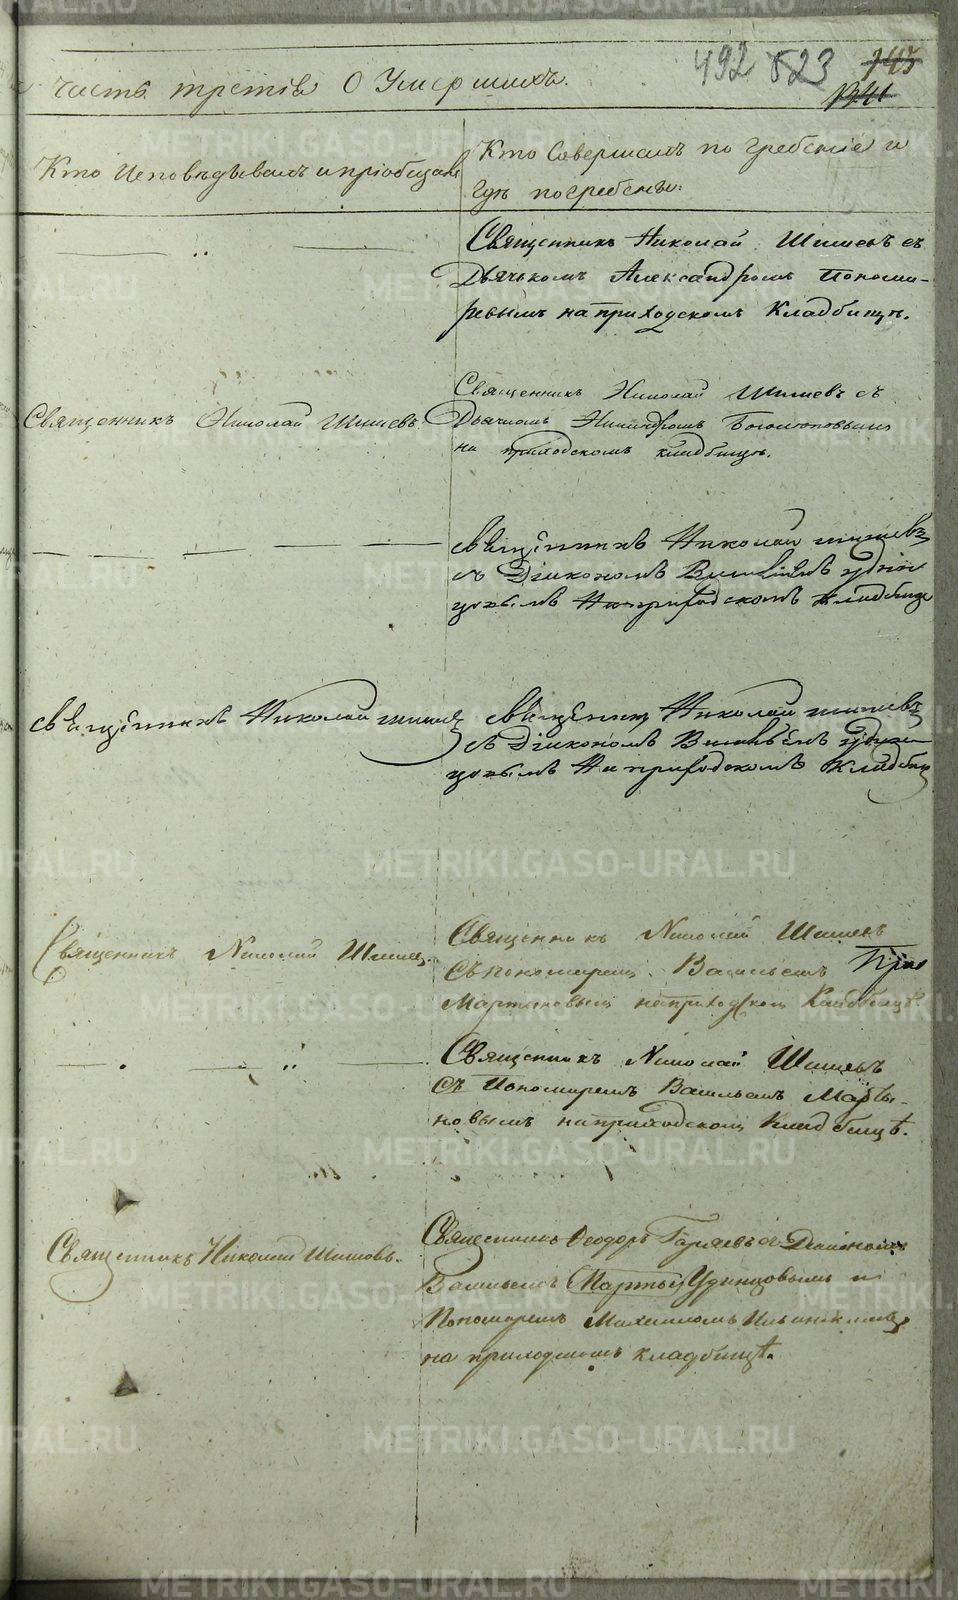 492 523 745
часть третія О Умершихъ.
Кто Исповѣдывалъ и пріобщалъ
Кто Совершалъ погребеніе и
гдѣ погребены.
Священникъ Николай Шишевъ съ
Дьячькомъ Александромъ Понома-
ревымъ на приходскомъ Кладбищѣ.
Священникъ Николай Шишевъ
Священникъ Николай Шишевъ съ
Дьячкомъ
на приходскомъ кладбищѣ.
священникъ Николай шишевъ
съ Діакономъ Васильемъ удин
цовымъ На приходскомъ кладбище
священникъ Николай шишев
священникъ Николай шишевъ
съ Діакономъ Васильемъ удин
цовымъ На приходскомъ кладбищ
Священникъ Николай Шишев.
Священникъ Николай Шишевъ
Съ пономаремъ Васильемъ
Мартыновымъ на приходскомъ Кладбищѣ.
Священникъ Николай Шишевъ
Съ Пономаремъ Васильемъ Марты-
новымъ на приходскомъ Кладбищѣ.
Священникъ Николай Шишовъ.
Священникъ Феодоръ съ Діакономъ
Васильемъ Удинцовымъ и
Пономаремъ Михаиломъ
на приходскомъ кладбищѣ.
METRIKI.GASO-URAL.RU